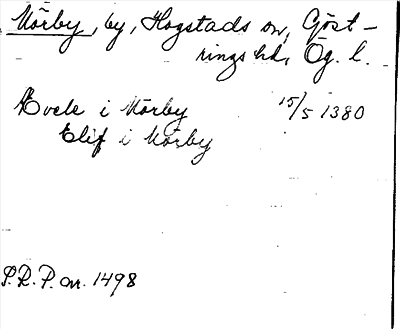 Mörby, by, Hogstads sn, Göst-
rings hd, Ög. l.
Ævele i Mörby 15/5 1380
Elif i Mörby
S.R.P. nr. 1498